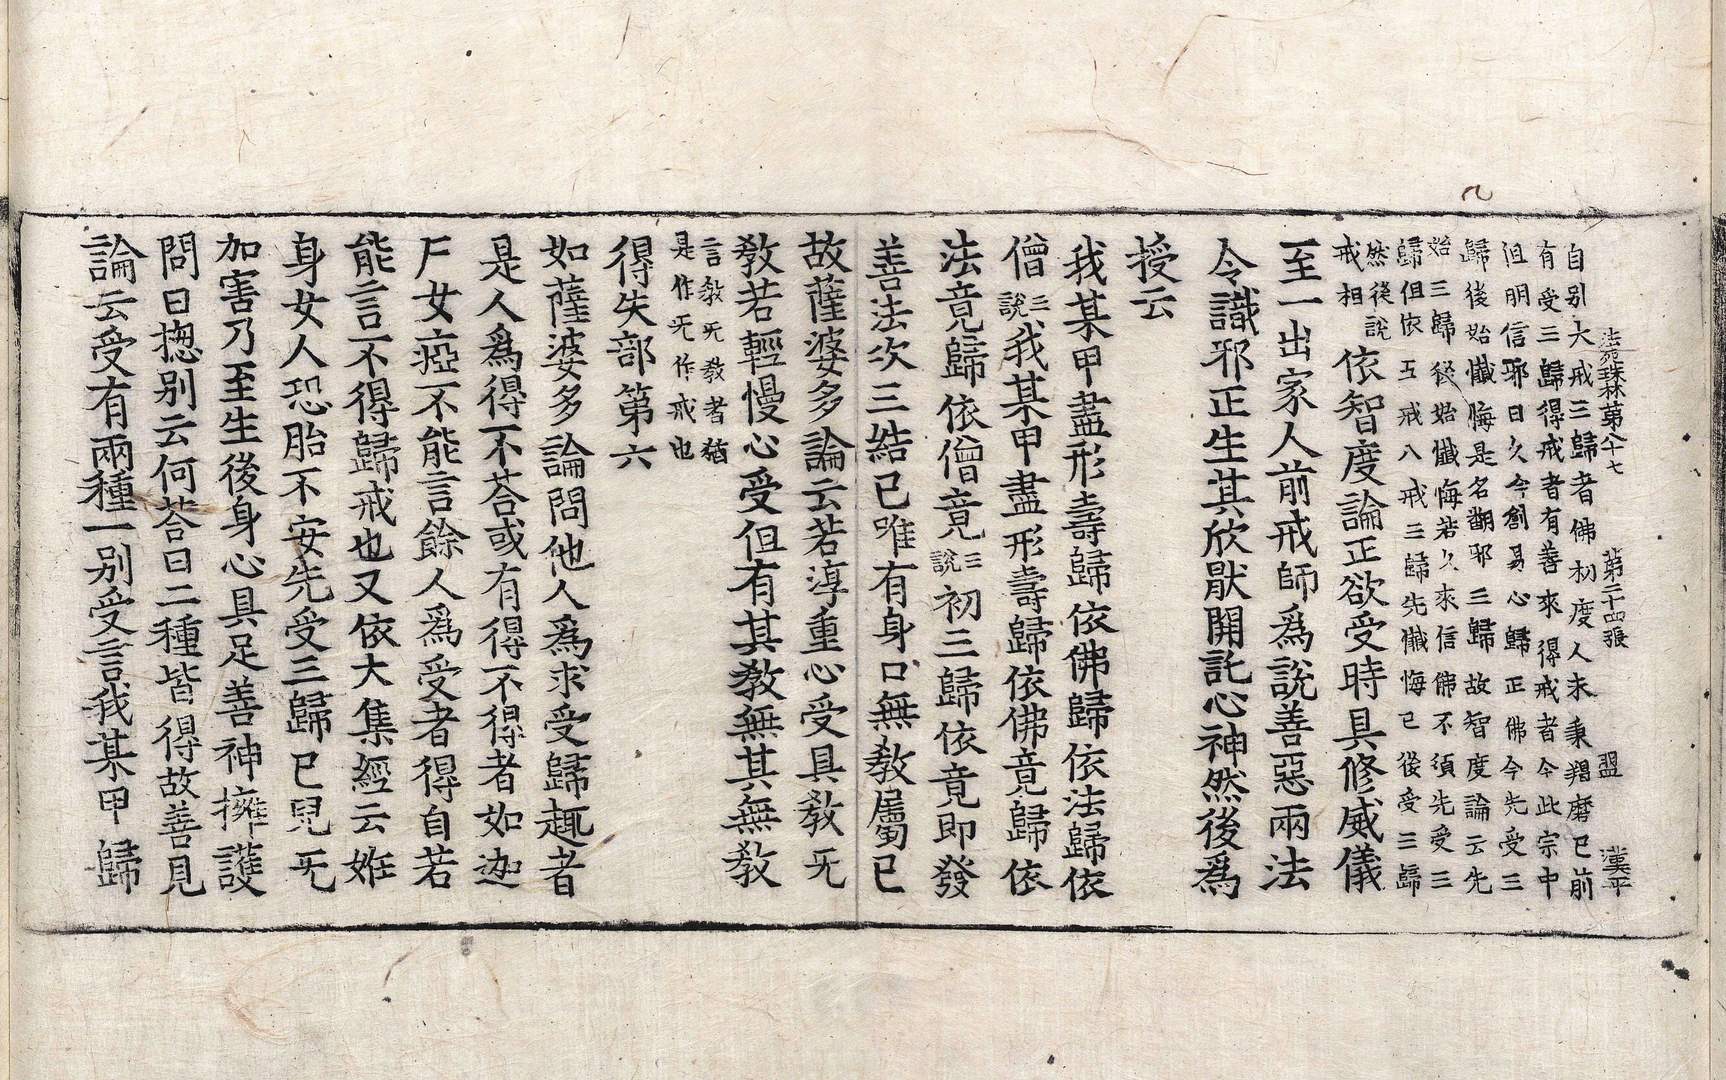 法苑珠林第八十七 第二十四張 盟 漢平
自別大戒三歸者佛初度人未秉羯磨已前
有受三歸得戒者有善來得戒者今此宗中
但明信邪日久今創易心歸正佛令先受三
歸後始懺悔是名翻邪三歸故智度論云先
始三歸後始懺悔若久來信佛不須先受三
歸但依五戒八戒三歸先懺悔已後受三歸
然後說
戒相
依智度論正欲受時具修威儀
至一出家人前戒師爲說善惡兩法
令識邪正生其欣猒開託心神然後爲
授云
我某甲盡形壽歸依佛歸依法歸依
僧三說我某甲盡形壽歸依佛竟歸依
法竟歸依僧竟三說初三歸依竟即發
善法次三結已唯有身口無教屬已
故薩婆多論云若淳重心受具教无
教若輕慢心受但有其教無其無教
言教无教者猶
是作无作戒也
得失部第六
如薩婆多論問他人爲求受歸趣者
是人爲得不荅或有得不得者如迦
尸女瘂不能言餘人爲受者得自若
能言不得歸戒也又依大集經云姙
身女人恐胎不安先受三歸已兒无
加害乃至生後身心具足善神擁護
問曰摠別云何荅曰二種皆得故善見
論云受有兩種一別受言我某甲歸